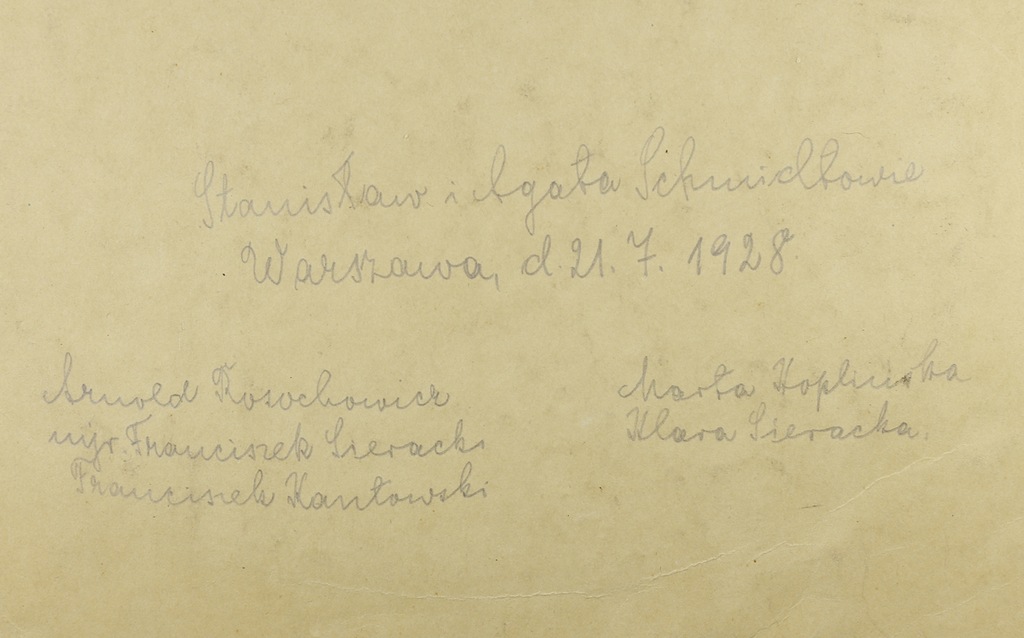 Stanisław i Agata Schmidtowie
Warszawa, d. 21. 7. 1928
Arnold Rosochowicz
mjr. Franciszek Sieracki
Franciszek Kantowski
Marta
Klara Sieracka.